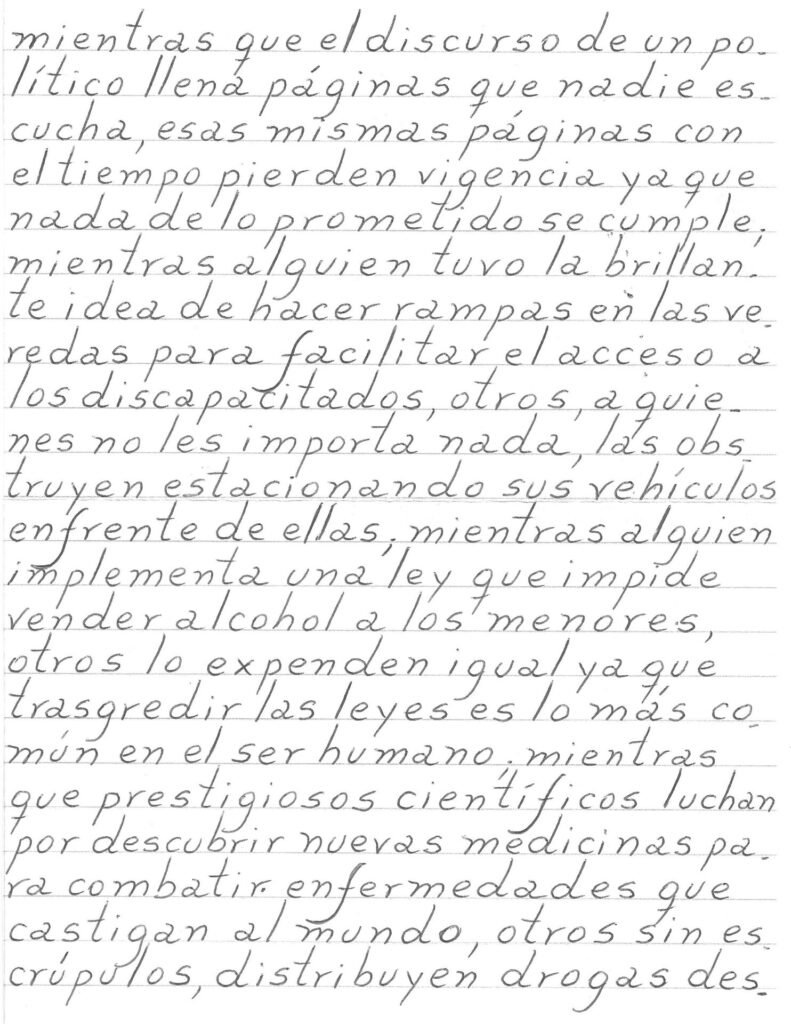 mientras que el discurso de un po-
lítico llena páginas que nadie es-
cucha, esas mismas páginas con
el tiempo pierden vigencia ya que
nada de lo prometido se cumple;
mientras alguien tuvo la brillan-
te idea de hacer rampas en las ve-
redas para facilitar el acceso a
los discapacitados, otros, a quie-
nes no les importa nada, las obs-
truyen estacionando sus vehículos
enfrente de ellas; mientras alguien
implementa una ley que impide
vender alcohol a los menores,
otros lo expenden igual ya que
trasgredir las leyes es lo más co-
mún en el ser humano; mientras
que prestigiosos científicos luchan
por descubrir nuevas medicinas pa-
ra combatir enfermedades que
castigan al mundo, otros sin es-
crúpulos, distribuyen drogas des-